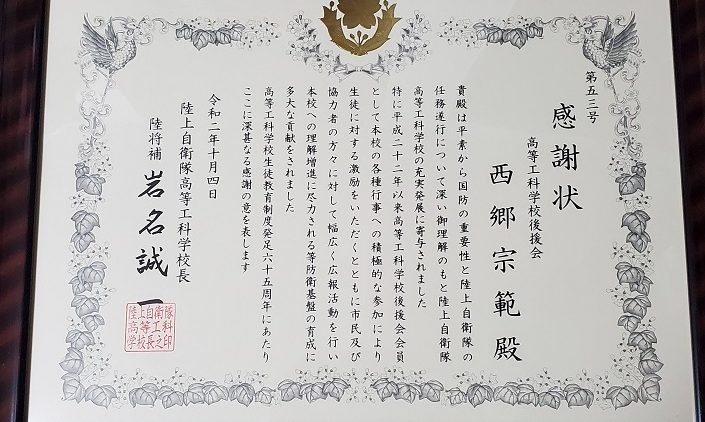 第五三号
感謝状
高等工科学校後援会
西郷宗範殿
貴殿は平素から国防の重要性と陸上自衛隊の
任務遂行について深い御理解のもと陸上自衛隊
高等工科学校の充実発展に寄与されました
特に平成二十二年以来高等工科学校後援会会員
として本校の各種行事への積極的な参加により
生徒に対する激励をいただくとともに市民及び
協力者の方々に対して幅広く広報活動を行い
本校への理解増進に尽力される等防衛基盤の育成に
多大な貢献をされました
高等工科学校生徒教育制度発足六十五周年にあたり
ここに深甚なる感謝の意を表します
令和二年十月四日
陸上自衛隊高等工科学校長
陸将補 岩名誠一
陸上自衛隊
高等工科
学校長之印